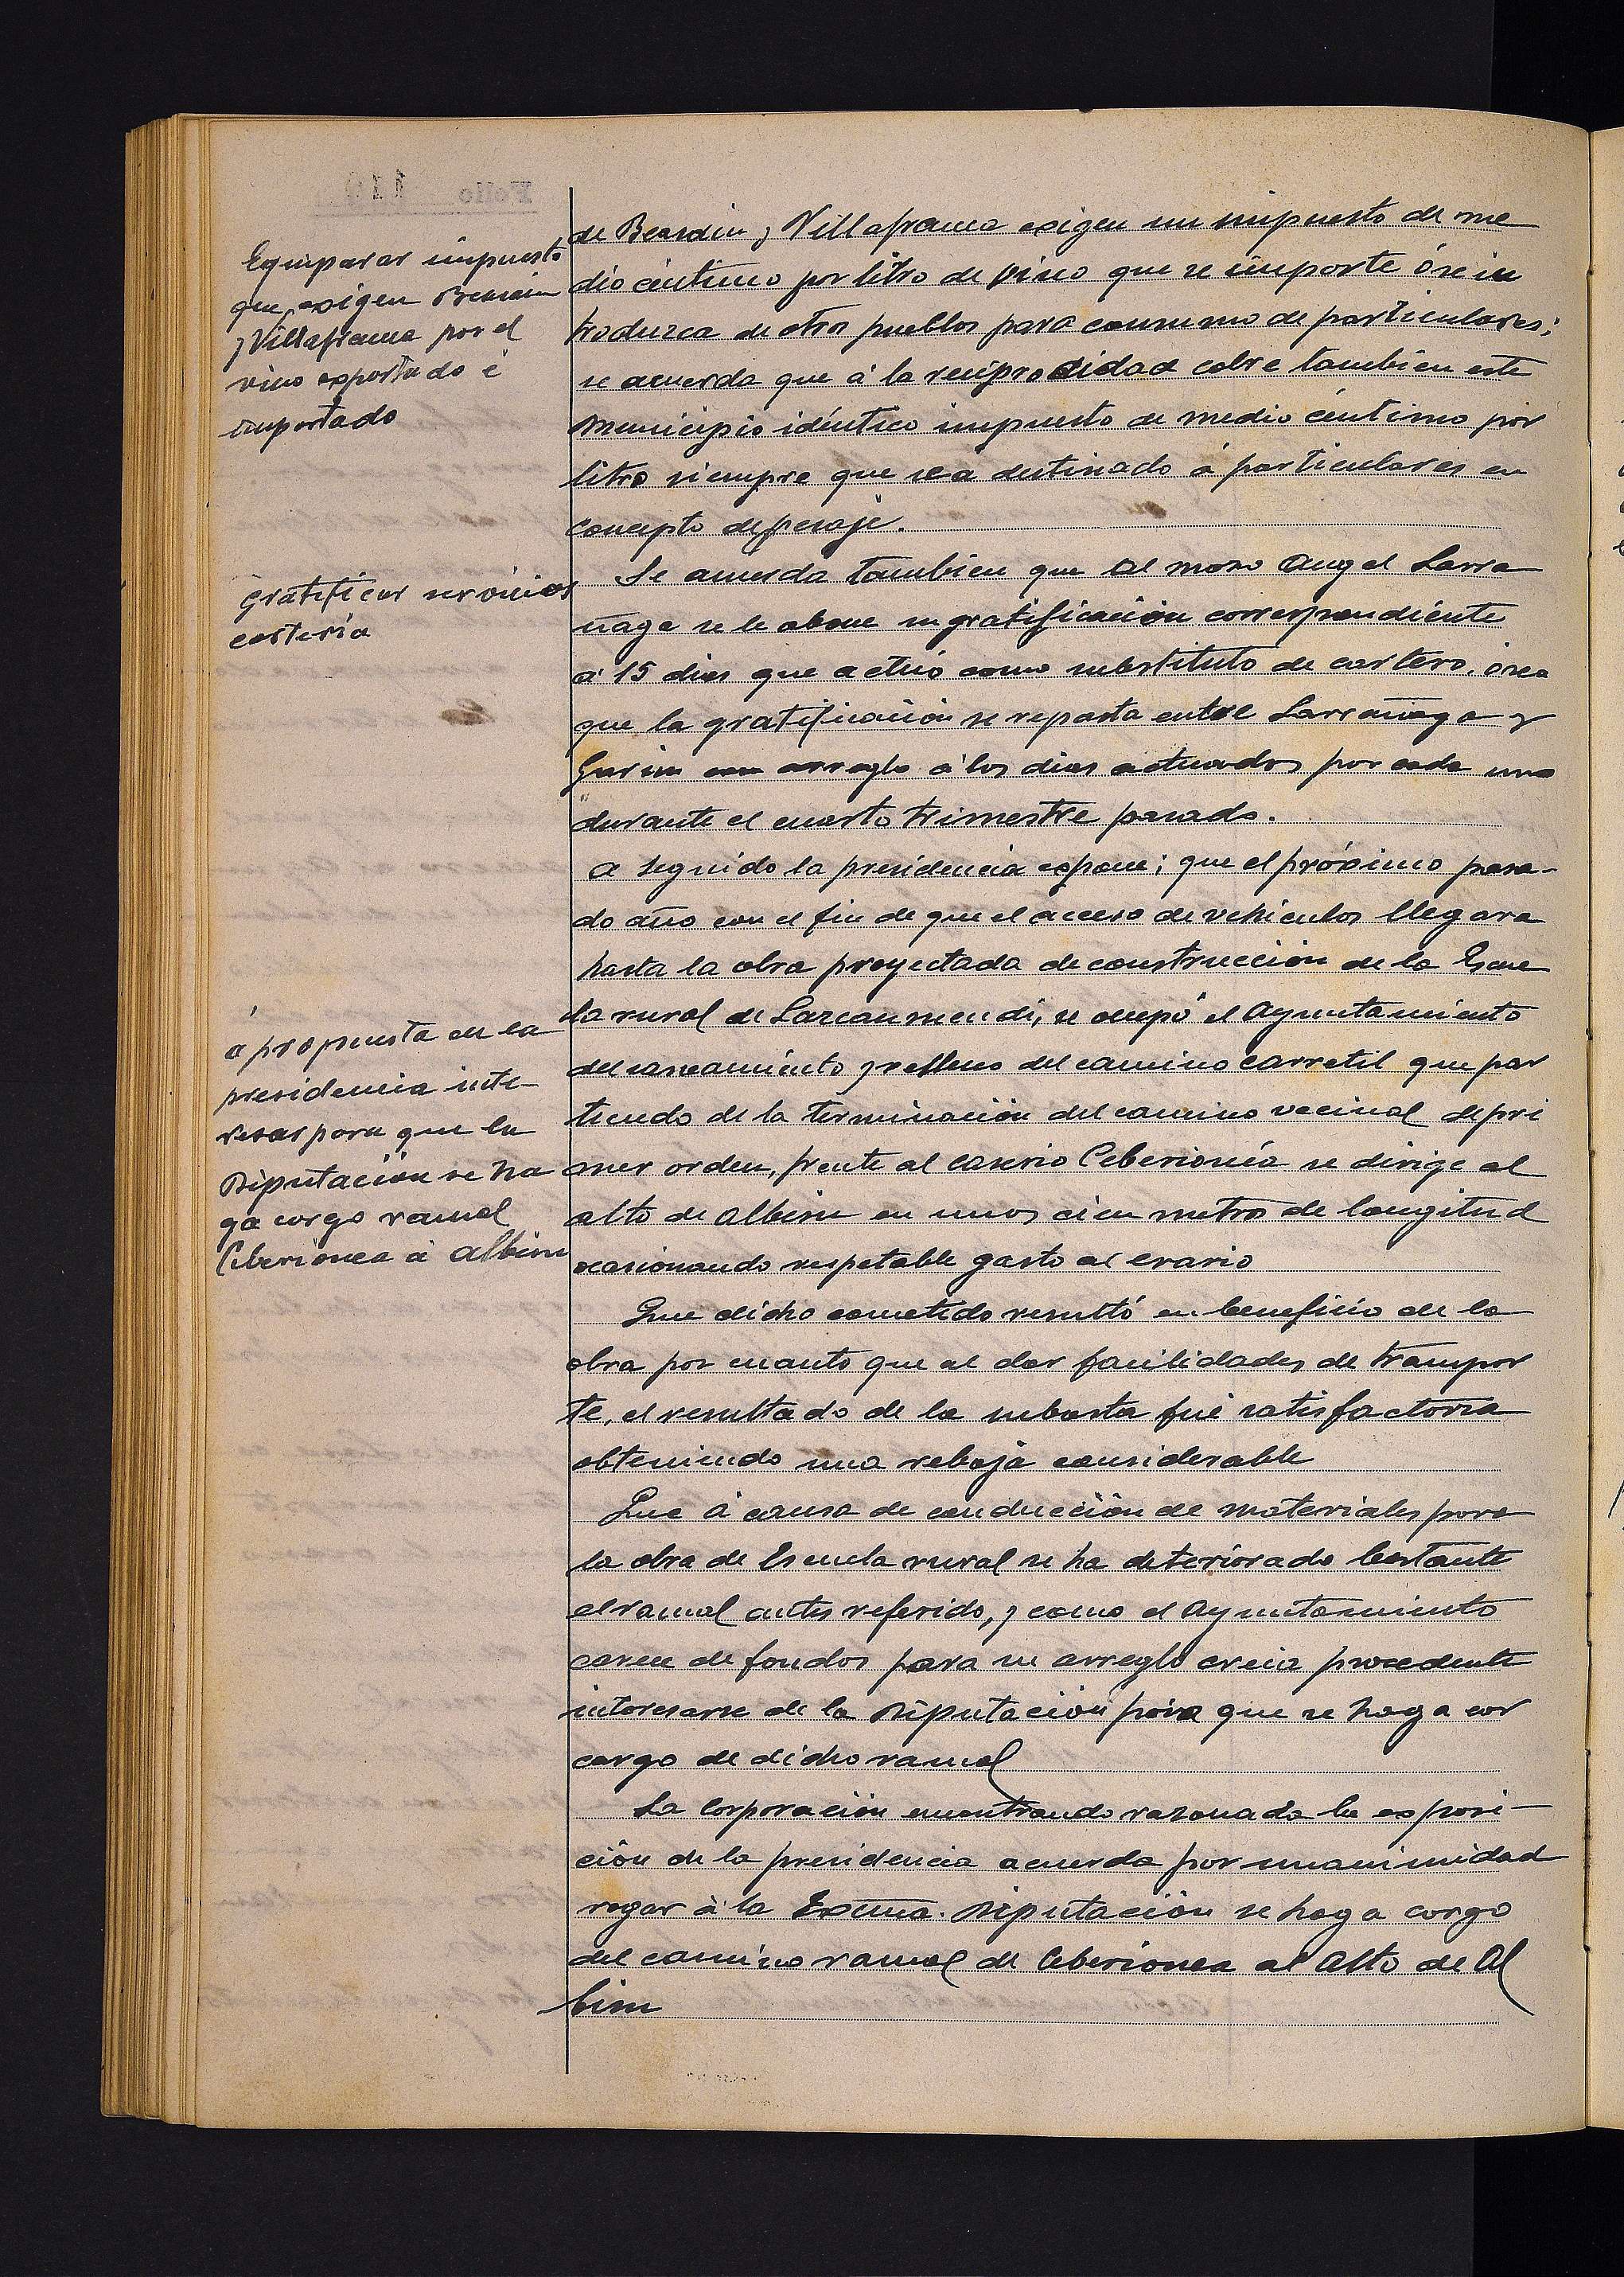 Equiparar impuesto
que exigen Beasain
y Villafranca por el
vino exportado é
importado
Gratificar servicios
cartería
á propuesta de la
presidencia inte-
resar para que la
Diputación se ha
ga cargo ramal
Ceberionea á Albizu
de Beasain y Villafranca exigen un impuesto de me
dio céntimo por litro de vino que se importe ó se in
troduzca de otros pueblos para consumo de particulares;
se acuerda que á la reciprocidad cobre tambien este
Municipio idéntico impuesto de medio céntimo por
litro siempre que sea destinado á particulares en
concepto de peraje.
Se acuerda tambien que al mozo Angel Larra
ñaga se le abone su gratificación correspondiente
á 15 dias que actuó como substituto de cartero, ó sea
que la gratificación se reparta entre Larrañaga y
Garin con arreglo á los dias actuados por cada uno
durante el cuarto trimestre pasado.
A seguido la presidencia expone; que el próximo pasa-
do año con el fin de que el acceso de vehiculos llegara
hasta la obra proyectada de construcción de la Escue
la rural de Lazcanmendi, se ocupó el Ayuntamiento
del saneamiento y relleno del camino carretil que par
tiendo de la terminación del camino vecinal de pri
mer orden, frente al caserio Ceberionéa se dirige al
alto de Albizu en unos cien metros de longitud
ocasionando respetable gasto al erario
Que dicho cometido resultó en beneficio de la
obra por cuanto que al dar facilidades de transpor
te, el resultado de la subasta fué satisfactoria
obteniendo una rebaja considerable
Que á causa de conducción de materiales para
la obra de Escuela rural se ha deteriorado bastante
el ramal antes referido, y como el Ayuntamiento
carece de fondos para su arreglo creia procedente
interesarse de la Diputación para que se haga car
cargo de dicho ramal
La Corporación encontrando razonada la exposi-
ción de la presidencia acuerda por unanimidad
rogar á la Excma. Diputación se haga cargo
del camino ramal de Ceberionea al Alto de Al
bizu